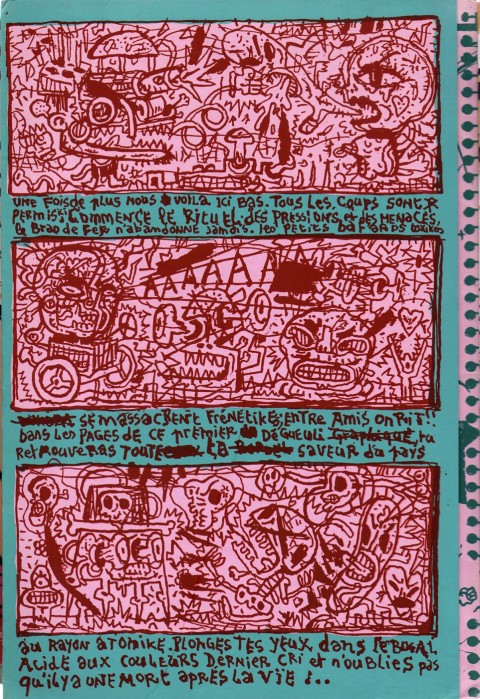 UNE FOIS DE PLUS NOUS VOILA ICI BAS. TOUS LES COUPS SONT
PERMIS: COMMENCE LE RITUEL DES PRESSIONS ET DES MENACES,
LE BRAO DE FER N'ABANDONNE JAMAIS. LES PETITS
SE MASSACRENT FRÉNÉTIKES, ENTRE AMIS ON RIT!!
DANS LES PAGES DE CE PREMIER DÉGUEULI GRAPHIQUE, tu
RETROUVERAS TOUTE LA SAVEUR du PAYS
AU RAYON ATOMIKE. PLONGES TES YEUX dans
ACIDE AUX COULEURS DERNIER CRI et n'OUBLIES PAS
QU'IL Y A UNE MORT APRÈS LA VIE !..